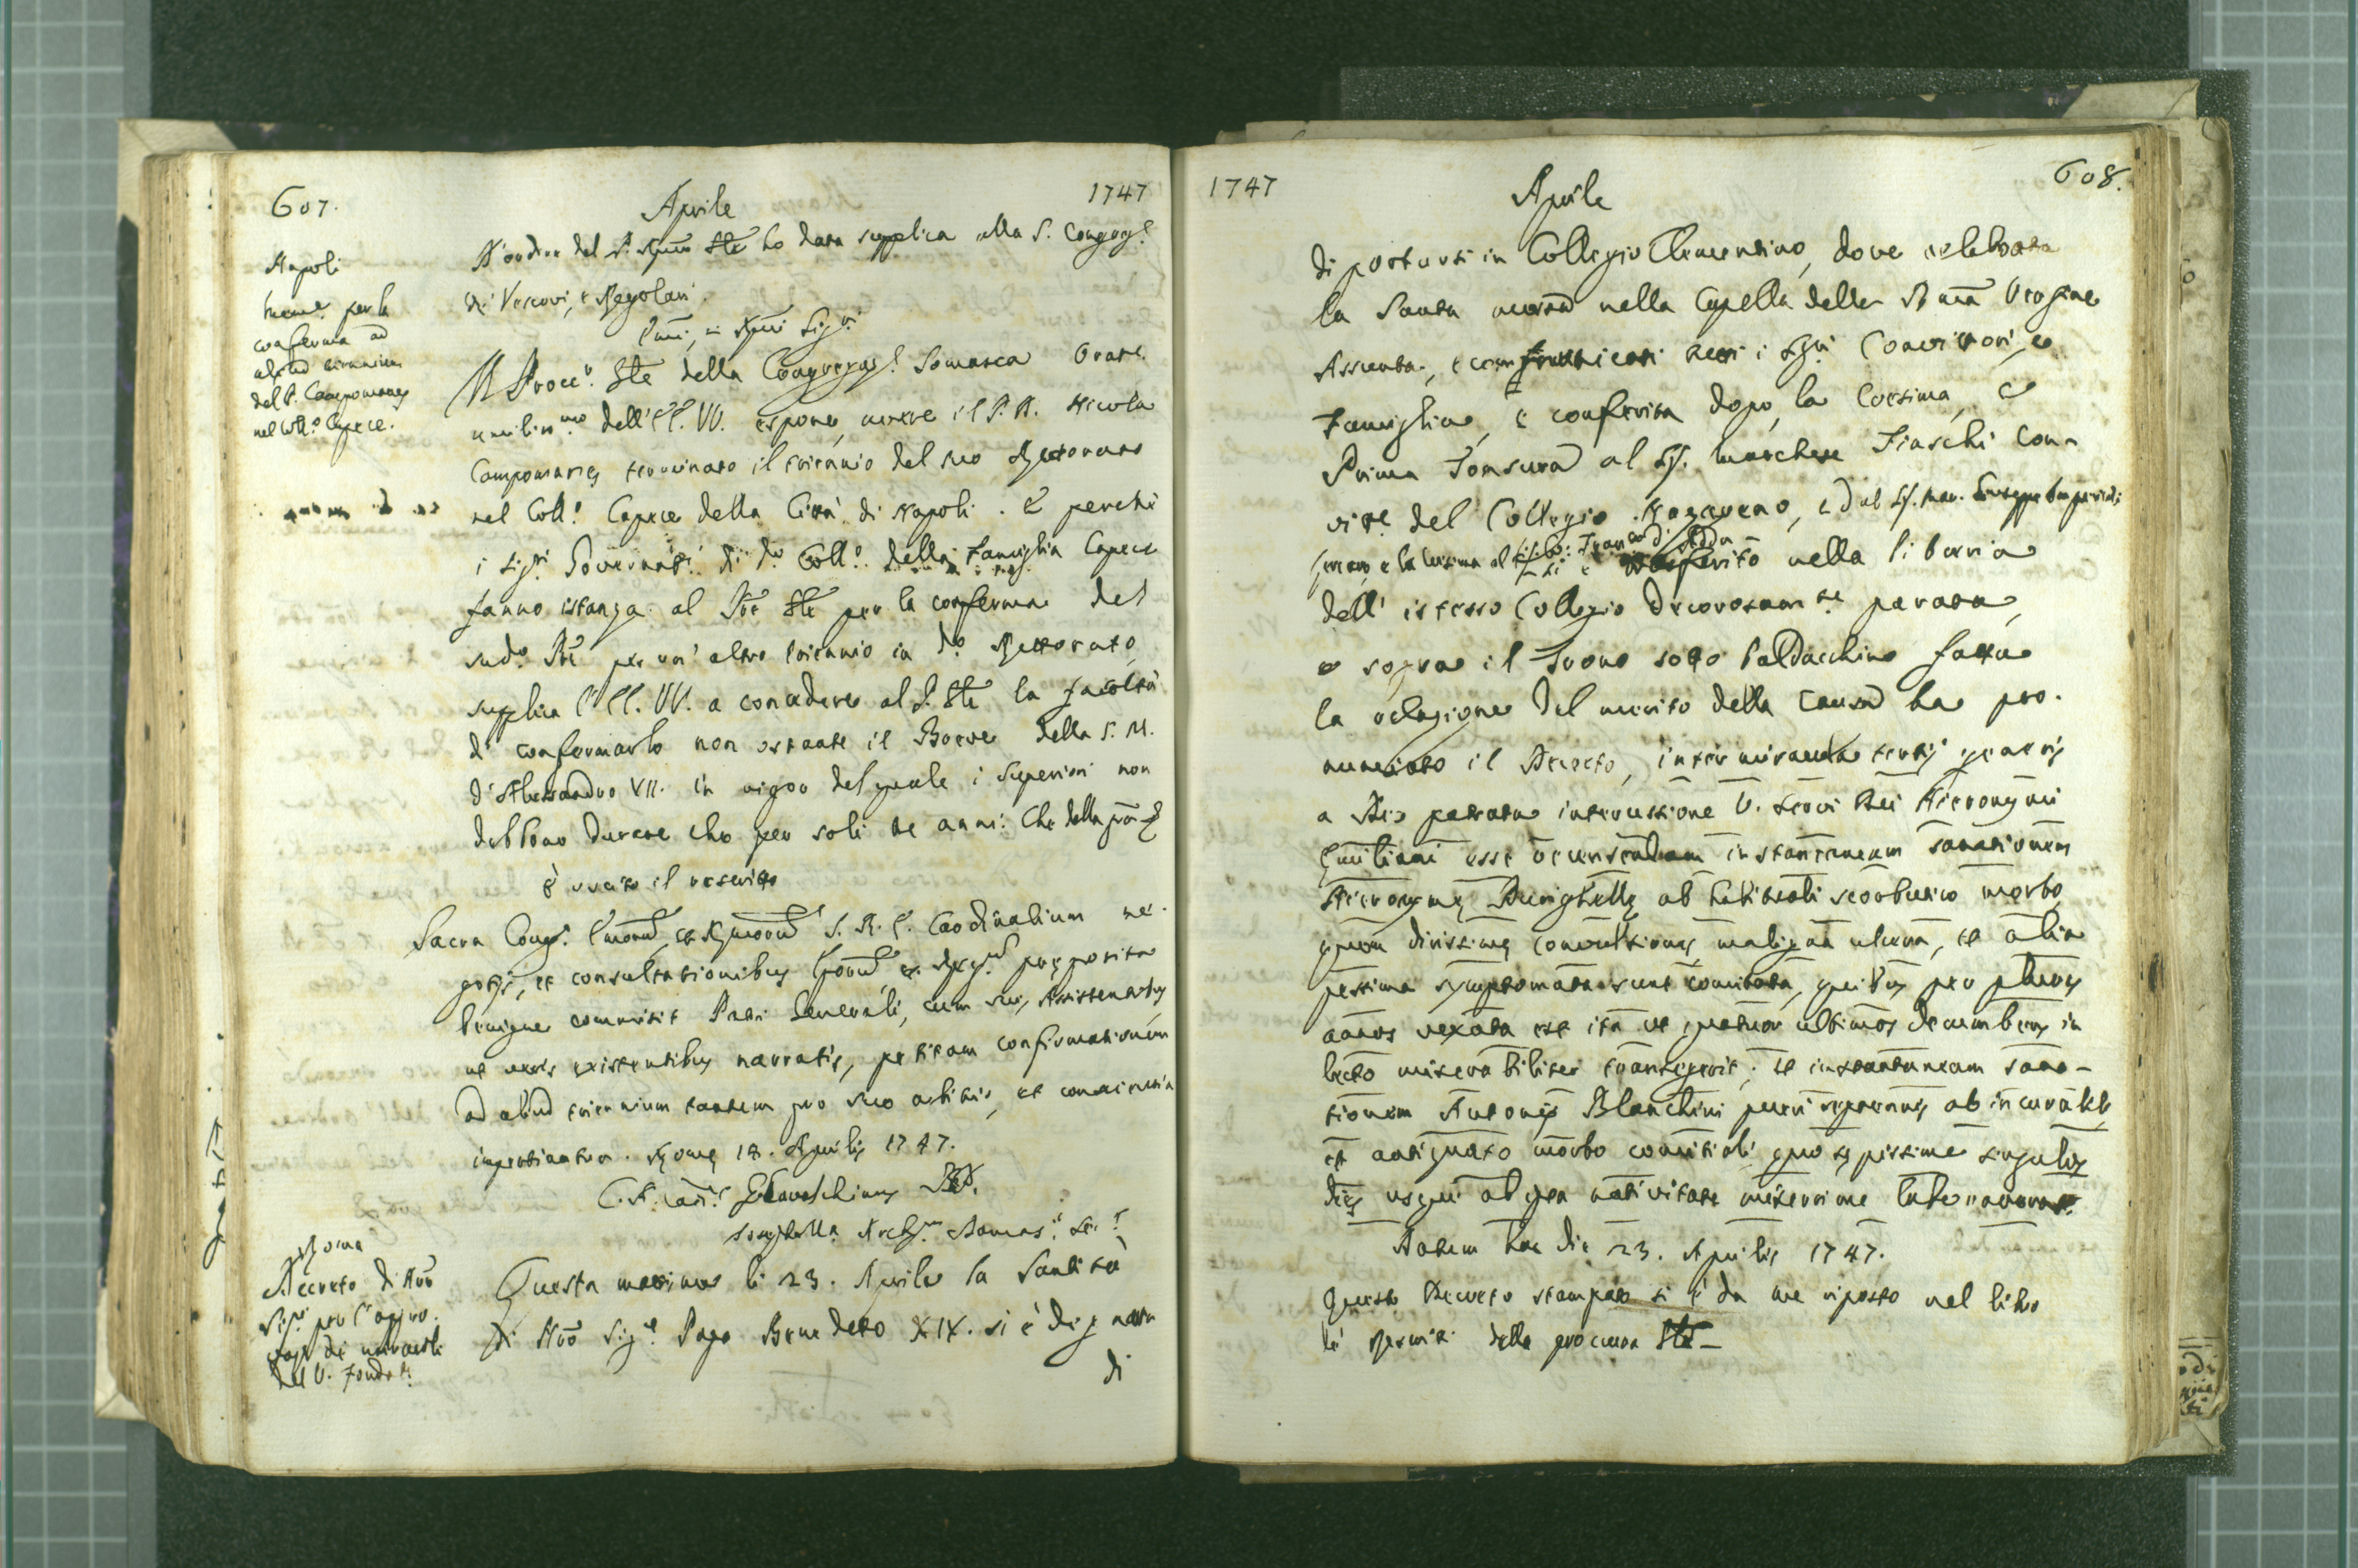 607. Aprile 1747
Napoli
mem.ª per la
conferma ad
aliud triennium
del P. Campomanes
nel Coll.º Capece.
D'ordine del P. Rmo Gle ho data supplica alla S. Congreg.e
de' Vescovi, e Regolari.
Emi, e Rmi Sig.ri
Il Proc.r Gle della Congregaz.e Somasca Orat.e
umiliss.mo dell'EE. VV. espone, avere il P. D. Nicola
Campomanes terminato il triennio del suo Rettorato
nel Coll.º Capece della Città di Napoli. E perchè
i Sig.ri Governat.ri di d.º Coll.º della Famiglia Capece
fanno istanza al Pre Gle per la conferma del
sud.º Pre per un' altro triennio in d.º Rettorato,
supplica l'EE. VV. a concedere al P. Gle la facoltà
di confermarlo non ostante il Breve della S. M.
d'Alessandro VII. in vigor del quale i Superiori non
debbono durare che per soli tre anni. Che della gra &
È uscito il rescritto
Sacra Cong.º Emorum, et Rmorum S. R. E. Cardinalium ne-
gotijs, et consultationibus Eporum, et Reg.m preposita
benigne commisit Patri Generali, cum suis Assistentibus
ut veris existentibus narratis, petitam confirmationem
ad aliud triennium tantum pro suo arbitrio, et conscientia
impertiatur. Romę 18. Aprilis 1747.
C. A. Card.
Archp.us Damas. Sec.s
Roma
Decreto di Nro
Sig.re per l'appro-
vaz.e de miracoli
del V. Fondat.e
Questa mattina li 23. Aprile la Santità
di Nrô Sig.e Papa Benedetto XIV. si è degnata
di
1747 Aprile 608.
di portarsi in Collegio Clementino, dove celebrata
la Santa messa nella Capella della SSma Vergine
Assunta, e communicati tutti i Sig.ri Convittori, e
Famiglia, e conferita dopo la Cresima, e
Prima Tonsura al Sig. Marchese Fiaschi Con-
vitt.e del Collegio Nazareno, e dal Sig. Mar. Giuseppe Imperiali
e la Cresima al Sig. Franc.co di
si è trasferito nella libreria
dell' istesso Collegio decorosam.te parata,
e sopra il Trono sotto baldacchino fatta
la relazione del merito della Causa ha pro-
nunciato il Decreto, inter miracula tertij generis
a Deo patrata intercessione V. Servi Dei Hieronymi
Emiliani esse recensendam instantaneam sanationem
Hieronymę Durighellę ab habituali scorbutico morbo,
quem dirissimę convulsiones, maligna ulcera, et alia
pessima symptomata sunt comitata, quibus per plures
annos vexata est ita ut quatuor ultimos decumbens in
lecto miserabiliter transegerit; et instantaneam sana-
tionem Antonij Blanchini pueri septennis ab incurabili,
et antiquato morbo comitiali, quo sępissime singulis
dies usque ab ipsa nativitate miserrime laboraverat.
Datum hac die 23. Aprilis 1747.
Questo Decreto stampato si è da me riposto nel libro
de' Rescritti della procura Gle—